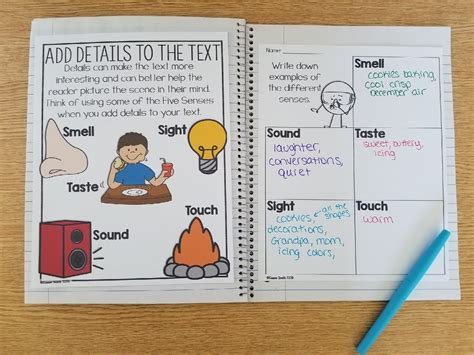 ADD DETAILS TO THE TEXT
Details can make the text more
interesting and can better help the
reader picture the scene in their mind.
Think of using some of the Five Senses
when you add details to your text.
Smell
Sight
Taste
Touch
Sound
Name:
Write down
examples of
the different
senses.
Smell
cookies baking,
cool crisp
december air
Sound
laughter,
conversations,
quiet
Taste
sweet, buttery,
icing
Sight
cookies, all the
shapes
decorations,
Grandpa, mom,
icing colors,
Touch
warm